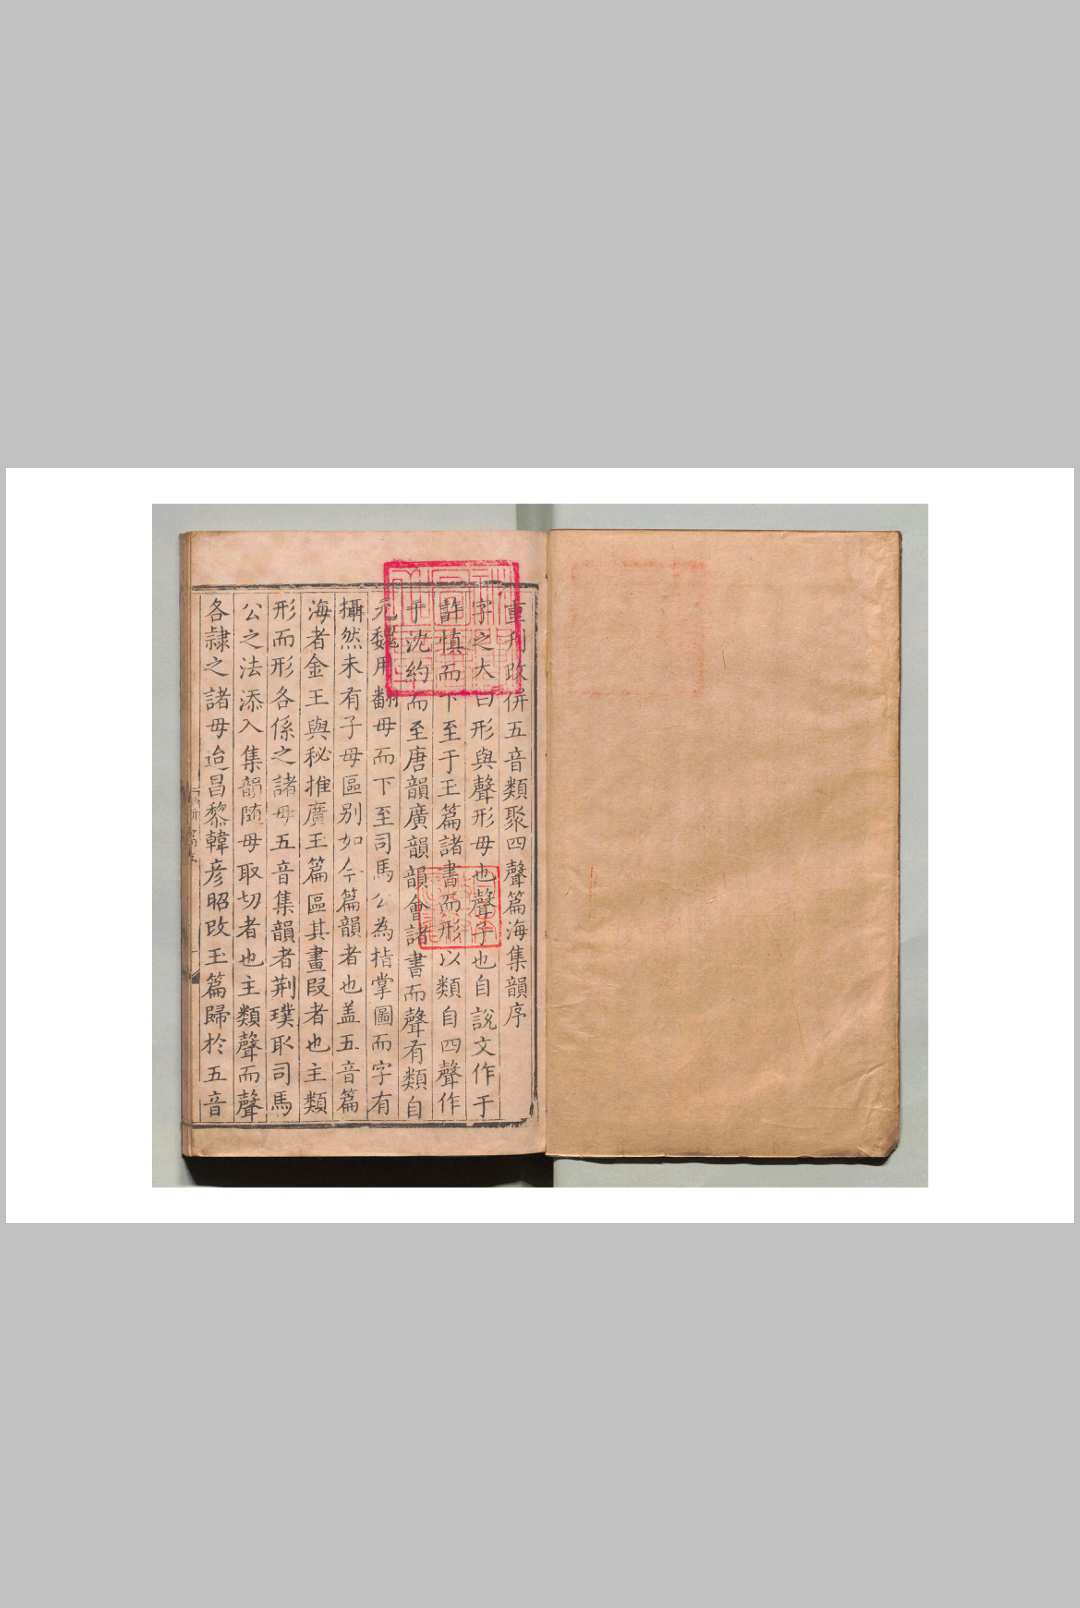 重刊改併五音類聚四聲篇海集韻序
字之大曰形與聲形母也聲子也自說文作于
許慎而下至于玉篇諸書而形以類自四聲作
于沈約而至唐韻廣韻韻會諸書而聲有類自
元魏用翻母而下至司馬公為指掌圖而字有
攝然未有子母區別如今篇韻者也盖五音篇
海者金王與秘推廣玉篇區其畫段者也主類
形而形各係之諸母五音集韻者荆璞取司馬
公之法添入集韻隨母取切者也主類聲而聲
各隷之諸母迨昌黎韓彦昭改玉篇歸於五音